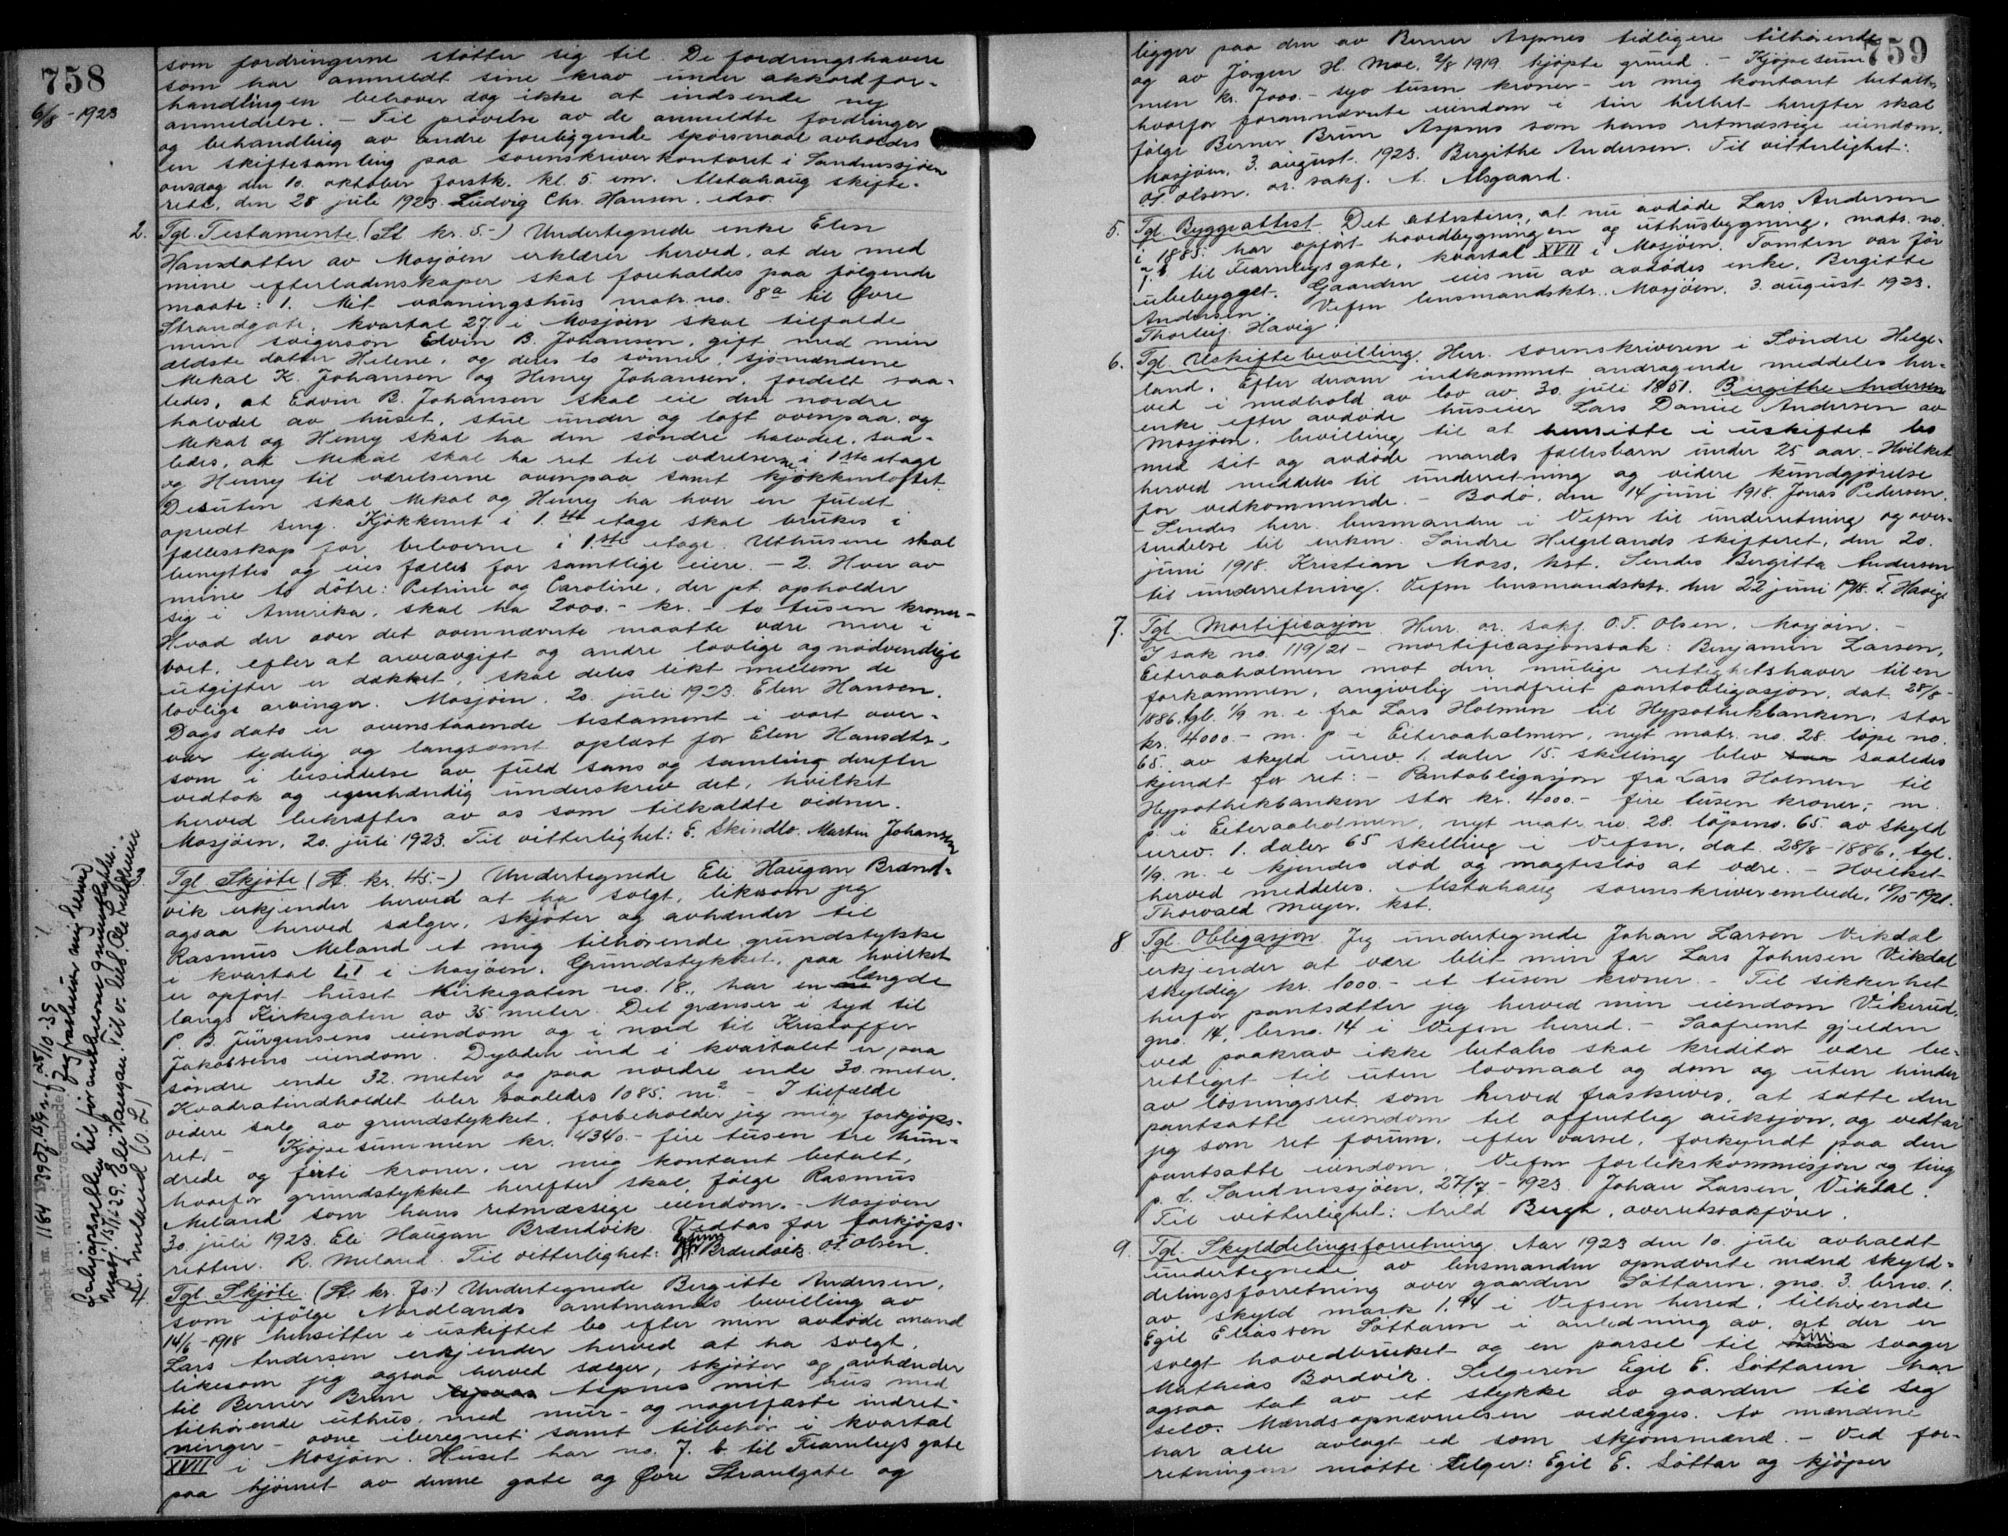 758
6/8 - 1923
som fordringerne støtter sig til. De fordringshavere
som har anmeldt sine krav under akkordfor-
handlingen behøver dog ikke at indsende ny
anmeldelse. - Til prøvelse av de anmeldte fordringer
og behandling av andre foreliggende spørsmaal avholdes
en skiftesamling paa sorenskriverkontoret i Sandnessjøen
onsdag den 10. oktober førstk. kl. 5 em. Alstahaug skifte-
rett, den 28 juli 1923. Ludvig Chr. Hansen. edsv.
2. Tgl. Testamente (St. kr. 5-) Undertegnede enke Elen
Hansdatter av Mosjøen erklærer herved, at der med
mine efterladenskaper skal forholdes paa følgende
maate: 1. Mit vaaningshus matr. no. 8a til Øvre
Strandgate, kvartal 27 i Mosjøen skal tilfalde
min svigersøn Edvin B. Johansen, gift med min
ældste datter Helene, og deres to sønner, sjømændene
Mekal K. Johansen og Henry Johansen, fordelt saa-
ledes, at Edvin B. Johansen skal eie den nordre
halvdel av huset, stue under og loft ovenpaa og
Mekal og Henry skal ha den søndre halvdel, saa-
ledes, at Mekal skal ha ret til værelserne i 1ste etage
og Henry til værelserne ovenpaa samt kjøkkenloftet.
Desuten skal Mekal og Henry ha hver en fuldt
opredt seng. Kjøkkenet i 1.ste etage skal brukes i
fællesskap for beboerne i 1.ste etage. Uthusene skal
benyttes og eies fælles for samtlige eiere. - 2. Hver av
mine to døtre: Petrine og Caroline, der pt. opholder
sig i Amerika, skal ha 2000.- kr. - to tusen kroner -
Hvad der over det ovennævnte maatte være mere i
boet, efter at arveavgift og andre lovlige og nødvendige
utgifter er dækket, skal deles likt mellem de
lovlige arvinger. Mosjøen, 20. juli 1923. Elen Hansen.
Dags dato er ovenstaaende testament i vort over-
vær tydelig og langsomt oplæst for Elen Hansdtr.
som i besiddelse av fuld sans og samling derefter
vedtok og egenhændig underskrev det, hvilket
herved bekræftes av os som tilkaldte vidner.
Mosjøen, 20. juli 1923. Til vitterlighet: E. Skindlo. Martin Johansen
Tgl. Skjøte (St. kr. 45.-) Undertegnede Eli Haugan Brænd-
vik erkjender herved at ha solgt, likesom jeg
ogsaa herved sælger, skjøter og avhænder til
Rasmus Meland et mig tilhørende grundstykke
i kvartal LI i Mosjøen. Grundstykket, paa hvilket
er opført huset Kirkegaten no. 18., har en længde
langs Kirkegaten av 35 meter. Det grænser i syd til
P. B. Jürgensens eiendom og i nord til Kristoffer
Jakobsens eiendom. Dybden ind i kvartalet er paa
søndre ende 32. meter og paa nordre ende 30. meter.
Kvadratindholdet blir saaledes 1085. m2 - I tilfælde
videre salg av grundstykket, forbeholder jeg mig forkjøps-
ret. - Kjøpesummen kr. 4340.- fire tusen tre hun-
drede og firti kroner, er mig kontant betalt,
hvorfor grundstykket herefter skal følge Rasmus
Meland som hans retmæssige eiendom. - Mosjøen
30 juli 1923. Eli Haugan Brændvik. Vedtas for forkjøps-
retten. R. Meland. Til vitterlighet: Brændvik. O.T. Olsen.
4. Tgl. Skjøte (St. kr. 70.) Undertegnede Bergitte Andersen,
som ifølge Nordlands amtmands bevilling av
14/6 - 1918 hensitter i uskiftet bo efter min avdøde mand
Lars Andersen erkjender herved at ha solgt,
likesom jeg ogsaa herved sælger, skjøter og avhænder
til Berner Brun Aspnes mit hus med
tilhørende uthus, med mur- og nagelfaste indret-
ninger - ovne iberegnet samt tilbehør i kvartal
XVII i Mosjøen. Huset har no. 7. b til Fearnleys gate
paa hjørnet av denne gate og Øvre Strandgate og
1184 390 25/10-35
jeg rasmus mig herved
Mosj. 15/11-29. Eli Haugan
R. Meland (O.L.)
759
ligger paa den av Berner Aspnes tidligere tilhørende
og av Jørgen H. Moe, 2/8 1919 kjøpte grund. - Kjøpesum-
men kr. 7000.- syv tusen kroner - er mig kontant betalt,
hvorfor forannævnte eiendom i sin helhet herefter skal
følge Berner Brun Aspnes som hans retmæssige eiendom.
Mosjøen, 3. august. 1923. Bergithe Andersen. Til vitterlighet:
O.T. Olsen. or. sakf. A. Alsgaard.
5. Tgl. Byggeattest. Det attesteres, at nu avdøde Lars Andersen
i 1885 har opført hovedbygningen og uthusbygning, matr. no.
7. b til Fearnleysgate, kvartal XVII i Mosjøen. Tomten var før
ubebygget. Gaarden eies nu av avdødes enke, Bergitte
Andersen. Vefsn lensmandsktr. Mosjøen, 3. august 1923.
Thorleif Havig.
6. Tgl. Uskiftebevilling. Herr. sorenskriveren i Søndre Helge-
land. Efter derom indkommet andragende meddeles her-
ved i medhold av lov av 30. juli 1851. Bergithe Andersen
enke efter avdøde huseier Lars Daniel Andersen av
Mosjøen, bevilling til at hensitte i uskiftet bo
med sit og avdøde mands fællesbarn under 25 aar. - Hvilket
herved meddeles til underretning og videre kundgjørelse
for vedkommende. - Bodø, den 14 juni 1918. Jonas Pedersen.
- Sendes herr. lensmanden i Vefsn til underretning og over-
sendelse til enken. Søndre Helgelands skifteret, den 20.
juni 1918. Kristian Moss, kst. Sendes Bergitta Andersen
til underretning. Vefsn lensmandsktr. den 22 juni 1918. T. Havig
7. Tgl. Mortifikasjon. Herr. or. sakf. O.T. Olsen, Mosjøen. -
I sak no. 119/21 - mortifikasjonssak: Benjamin Larsen,
Eiteraaholmen mot den mulige rettighetshaver til en
forkommen, angivelig indfriet pantobligasjon, dat. 28/8-
1886, tgl. 1/9 n. e. fra Lars Holmen til Hypothekbanken, stor
kr. 4000.- m. p. i Eiteraaholmen, nyt matr. no. 28. løpe no.
65. av skyld urev. 1. daler 15. skilling blev saaledes
kjendt for ret: - Pantobligasjon fra Lars Holmen til
Hypothekbanken stor kr. 4000.- fire tusen kroner, m.
p. i Eiteraaholmen, nyt matr. no. 28. løpeno. 65. av skyld
urev. 1. daler 65 skilling i Vefsn, dat. 28/8 - 1886, tgl.
1/9. n. e. kjendes død og magtesløs at være. - Hvilket
herved meddeles. Alstahaug sorenskriverembede, 15/10-1921.
Thorvald Meyer. kst.
8 Tgl. Obligasjon. Jeg undertegnede Johan Larsen Vikdal
erkjender at være blit min far Lars Johnsen Vikdal
skyldig kr. 1000.- et tusen kroner. - Til sikkerhet
herfor pantsætter jeg herved min eiendom Vikerud,
gno. 14, brno. 14 i Vefsn herred. - Saafremt gjelden
ved paakrav ikke betales skal kreditor være be-
rettiget til uten lovmaal og dom og uten hinder
av løsningsret som herved fraskrives, at sætte den
pantsatte eiendom til offentlig auksjon, og vedtar
jeg som ret forum, efter varsel, forkyndt paa den
pantsatte eiendom, Vefsn forlikskommisjon og ting
p. t. Sandnessjøen, 27/7 - 1923. Johan Larsen, Vikdal.
Til vitterlighet: Arild Bergh, overretssakfører.
9. Tgl. Skylddelingsforretning. Aar 1923 den 10. juli avholdt
undertegnede av lensmanden opnævnte mænd skyld-
delingsforretning over gaarden Søttaren, gno. 3. brno. 1.
av skyld mark 1.94 i Vefsen herred, tilhørende
Egil Eliassen Søttaren i anledning av, at der er
solgt hovedbruket og en parsel til sin svager
Mathias Bordvik. Selgeren Egil E. Søttaren har
ogsaa tat av et stykke av gaarden til sig
selv. Mandsopnævnelsen vedlægges. Av mændene
har alle avlagt ed som skjønsmænd. - Ved for-
retningen møtte selger: Egil E. Søttar og kjøper